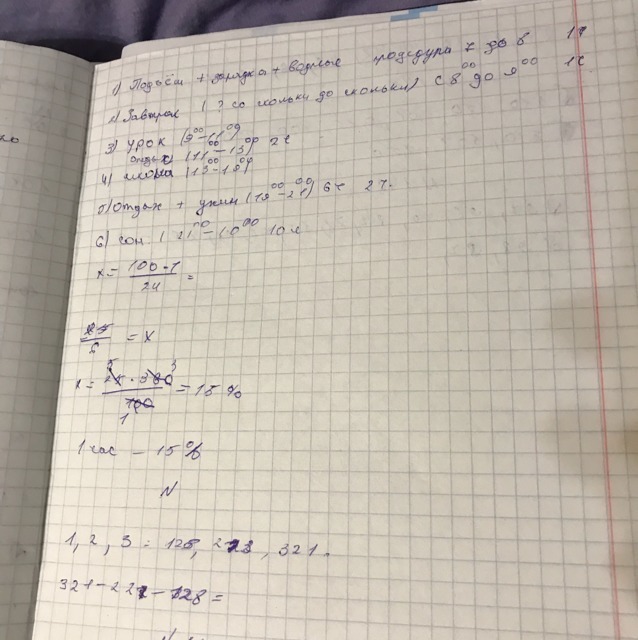 1) Подъём + зарядка + водные процедура 7 до 8 1ч
2) Завтрак ( ? со скольки до скольки) с 8⁰⁰ до 9⁰⁰ 1ч
3) Урок (9⁰⁰-11⁰⁰)
отдых (11⁰⁰-13⁰⁰) 2ч
4) (13-19⁰⁰)
5) Отдых + ужин (19⁰⁰-21⁰⁰) 6ч 2ч.
6) сон ( 21⁰⁰ - 10ч
x = 100·1/24 =
25/6 = x
x = 25·360/100 = 15%
1 час - 15%
N
1, 2, 3 = 123, 213, 321.
321-221-128=